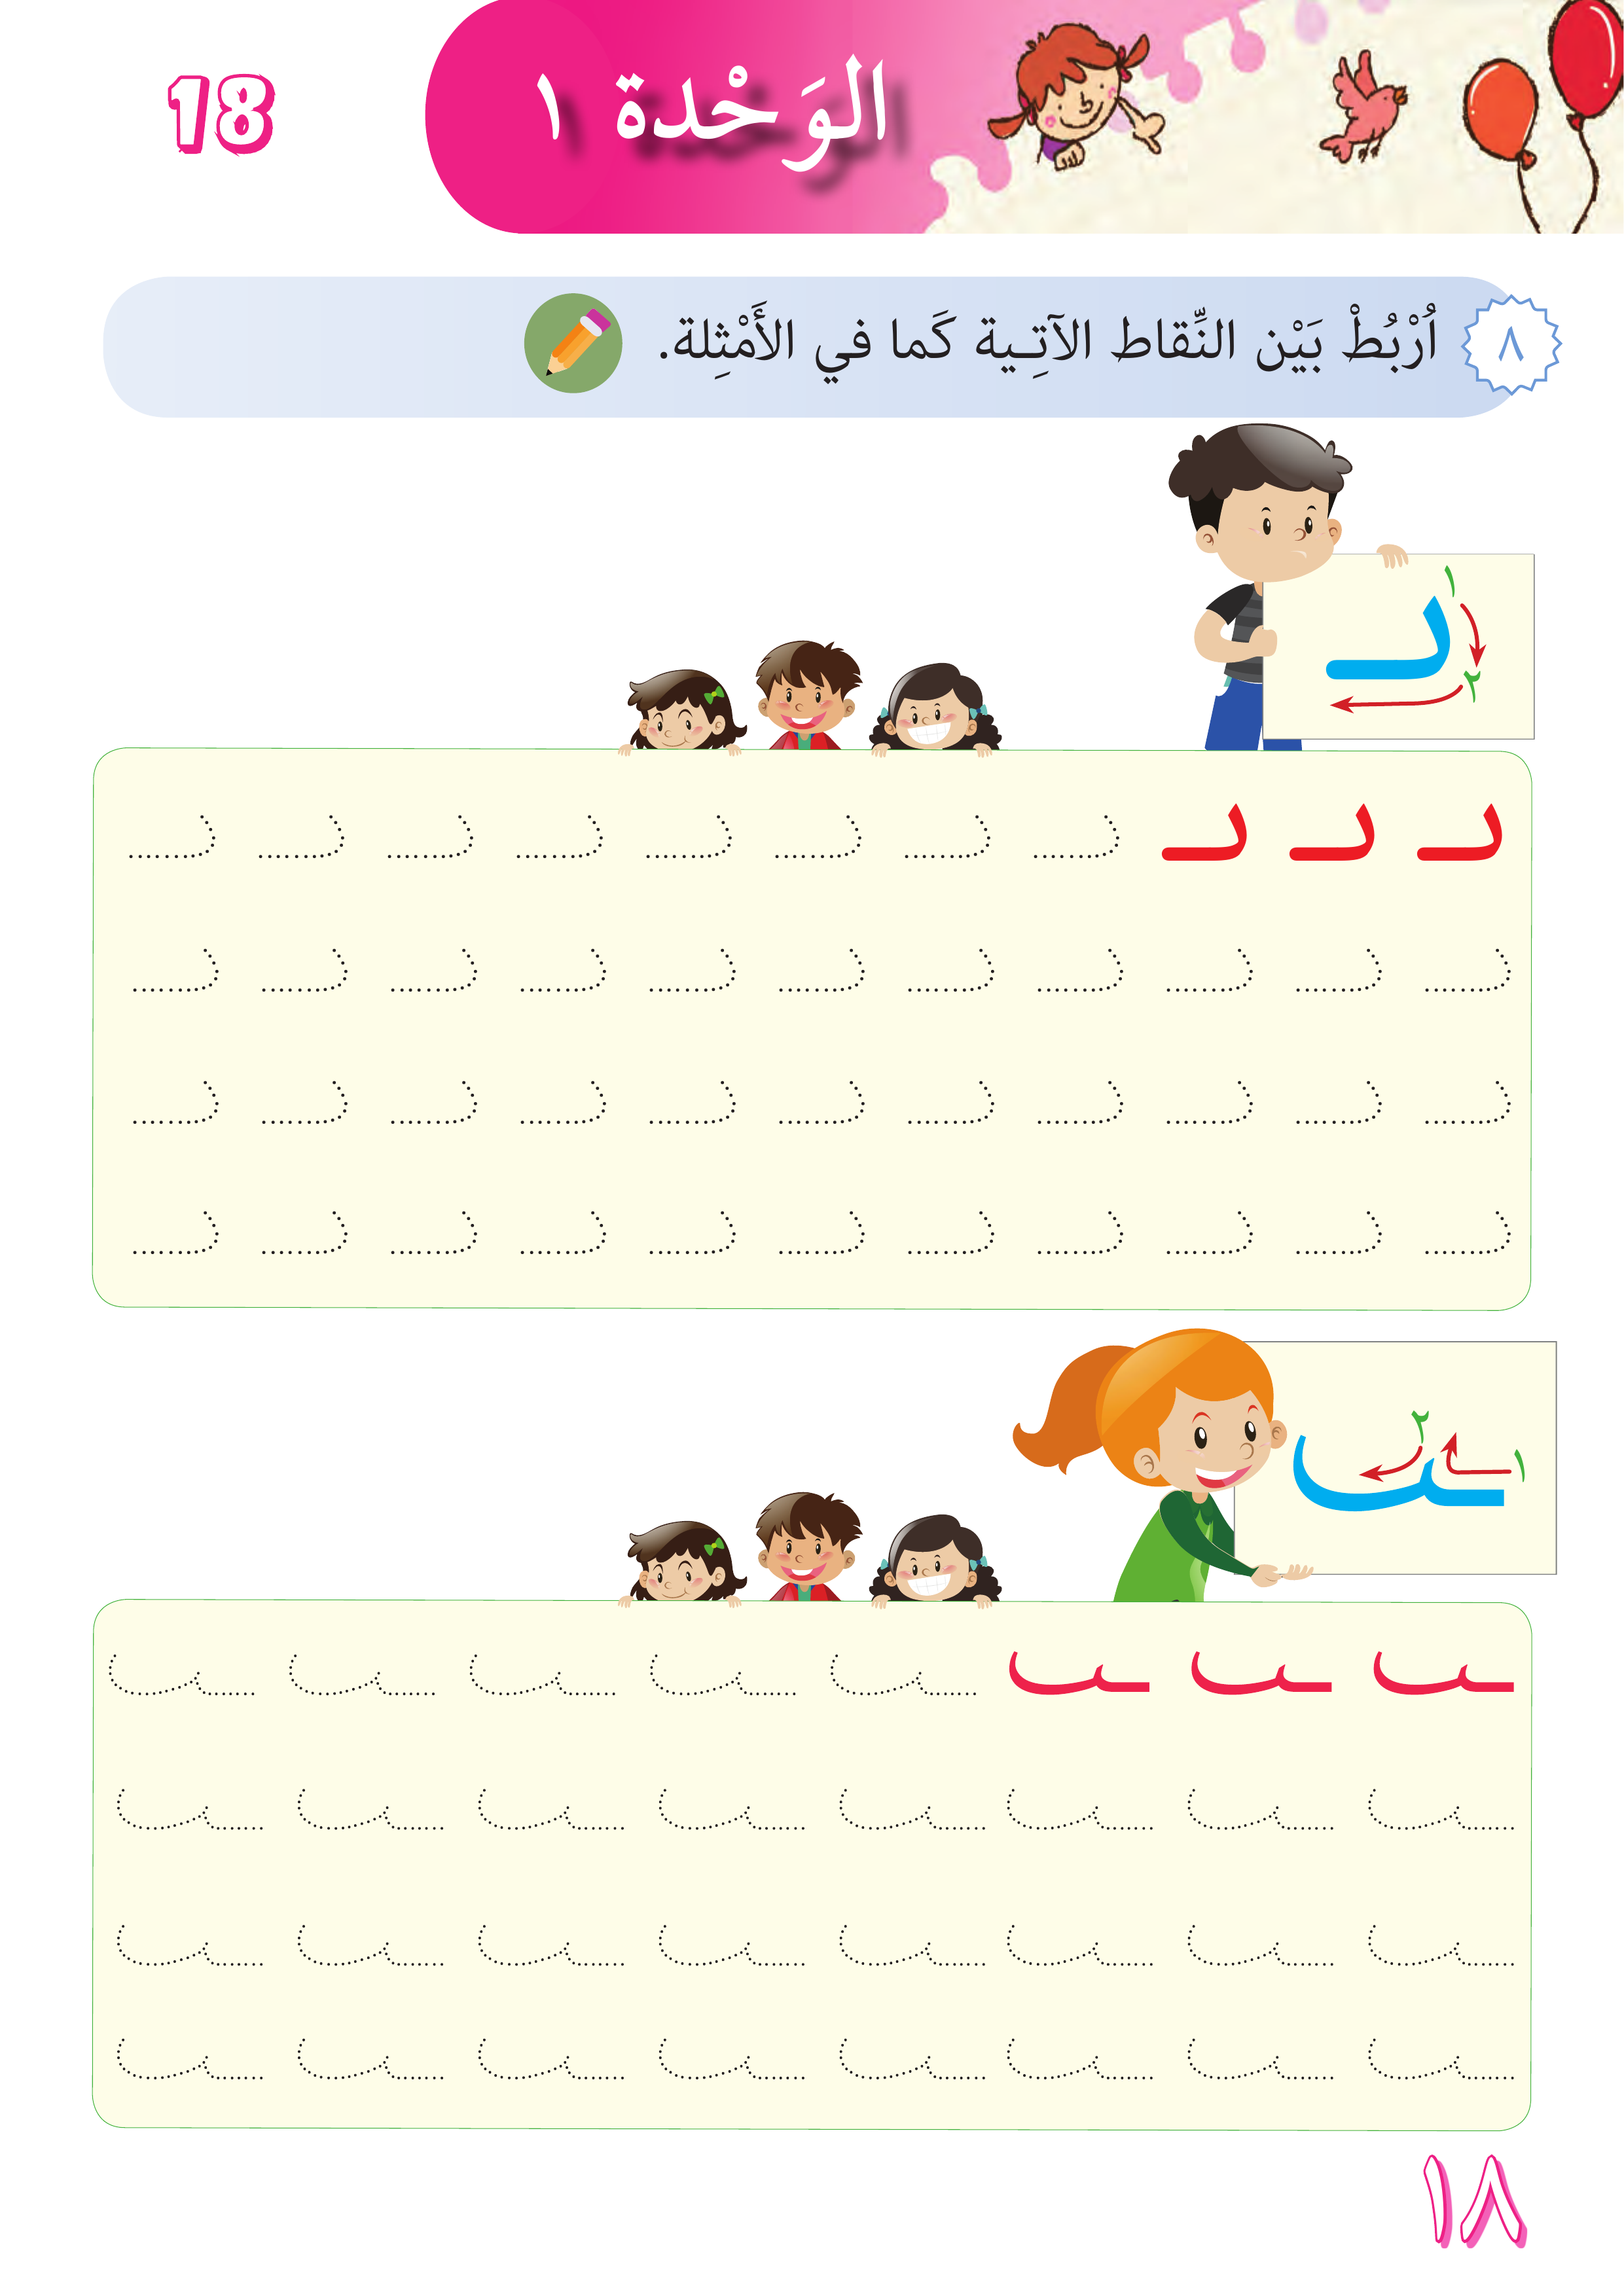 18
الوَحْدة ١
٨
اُرْبُطْ بَيْن النِّقاط الآتِـية كَما في الأَمْثِلة.
١
٢
١
٢
١٨